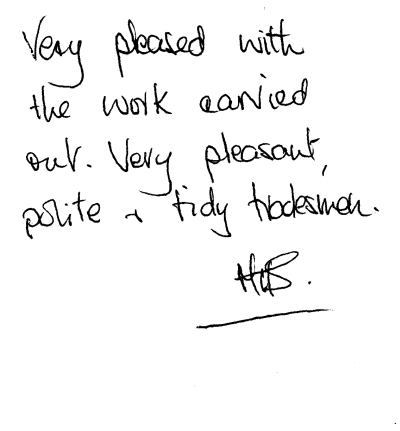 Very pleased with
the work carried
out. Very pleasant,
polite + tidy tradesmen.